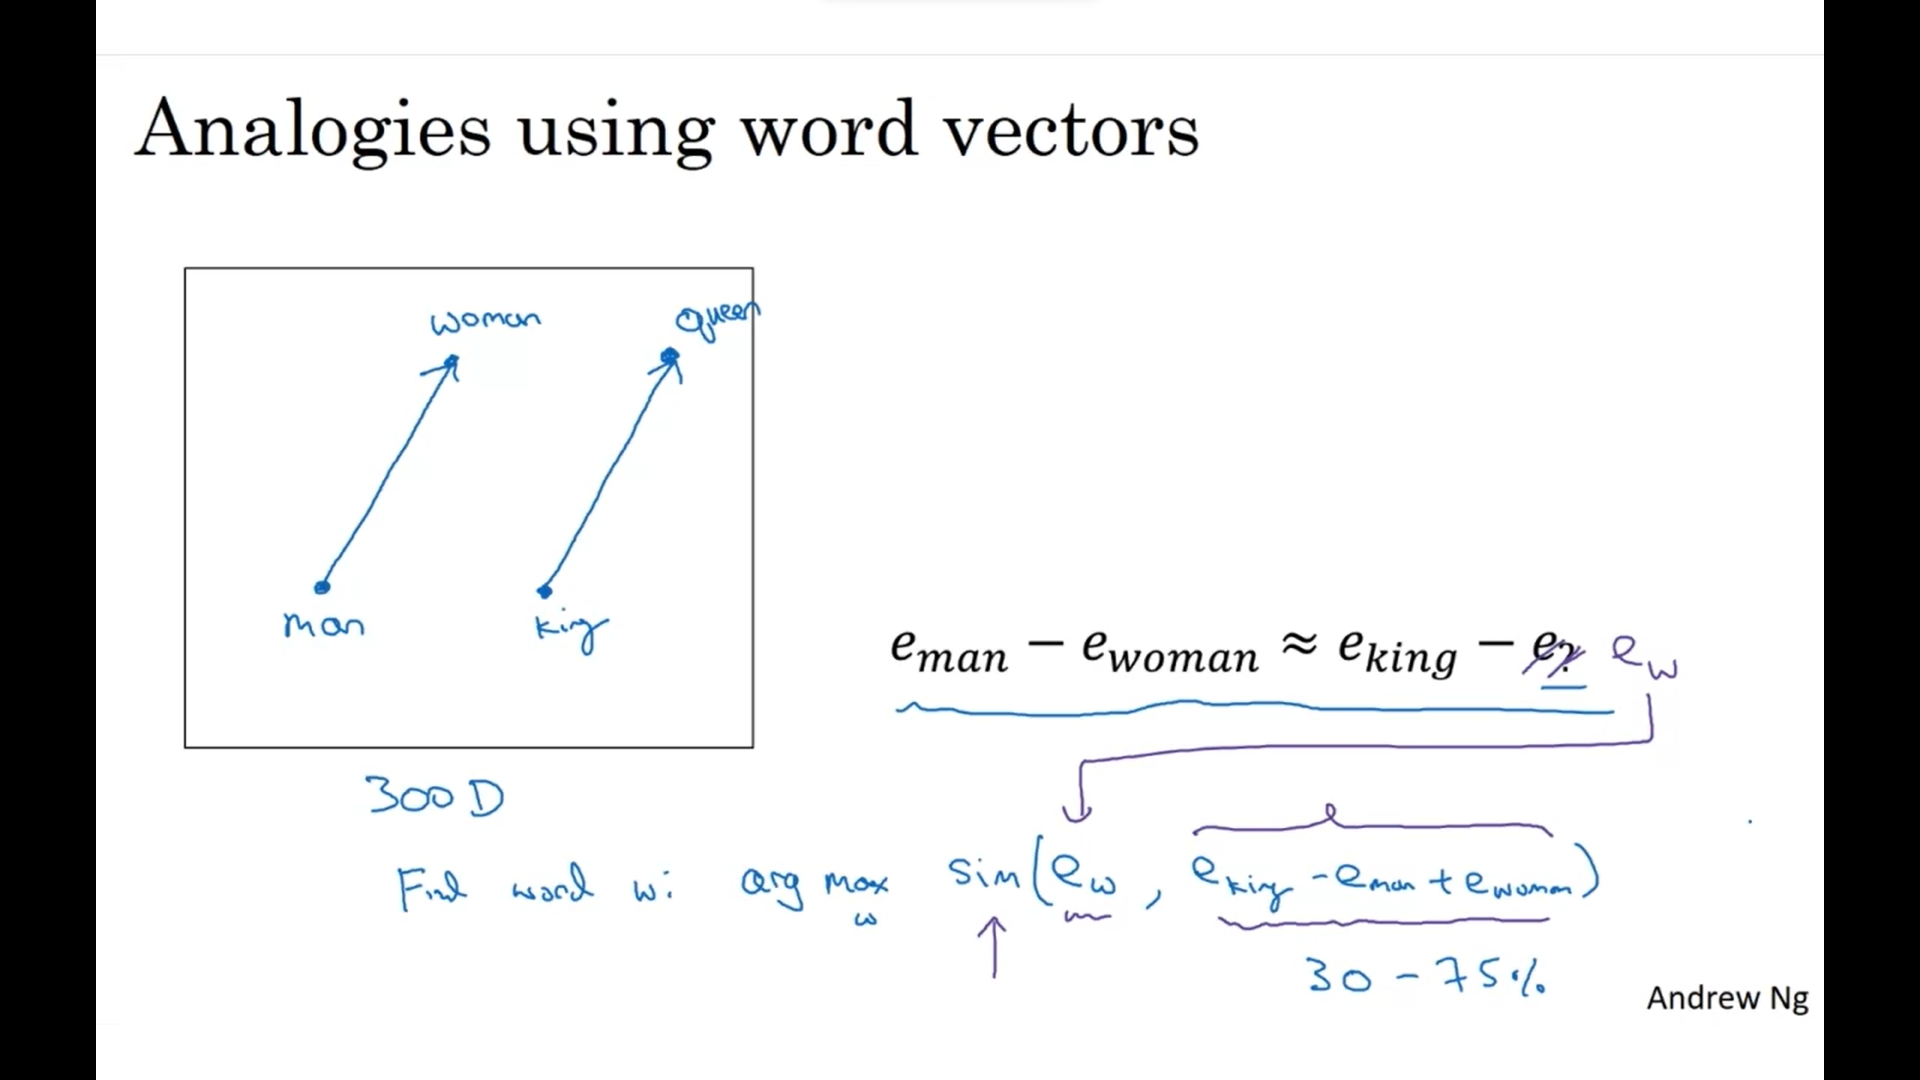 Analogies using word vectors
woman
queen
man
king
e_man − e_woman ≈ e_king − e_? e_w
300 D
Find word w: arg max_w sim(e_w, e_king − e_man + e_woman)
30 − 75%
Andrew Ng